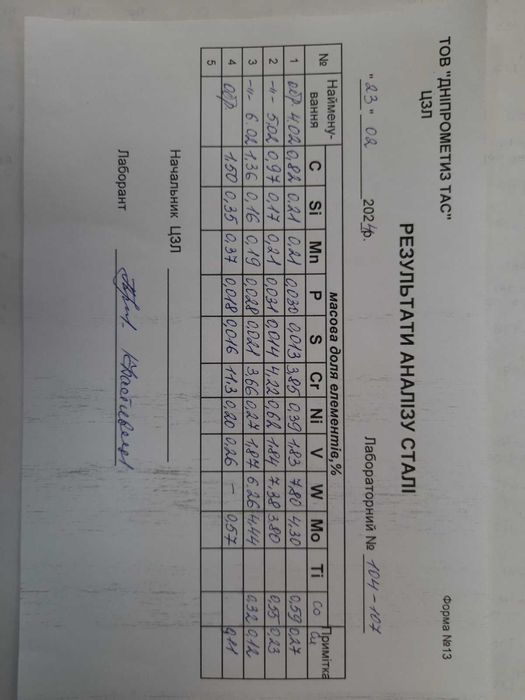 ТОВ "ДНІПРОМЕТИЗ ТАС"
ЦЗЛ
Форма №13
РЕЗУЛЬТАТИ АНАЛІЗУ СТАЛІ
"23" 02 2024р.
Лабораторний № 104-107
№ Наймену-вання масова доля елементів,% Примітка
C Si Mn P S Cr Ni V W Mo Ti Co Cu
1 обр. 4.02 0,82 0,21 0,21 0,030 0,013 3,85 0,39 1,83 7,80 4,30 0,59 0,27
2 -"- 5.02 0,97 0,17 0,21 0,031 0,014 4,22 0,62 1,84 7,38 3,80 0,55 0,23
3 -"- 6.02 1,36 0,16 0,19 0,028 0,021 3,66 0,27 1,87 6,26 4,44 0,32 0,12
4 обр. 1,50 0,35 0,37 0,018 0,016 11,3 0,20 0,26 – 0,57 0,11
5
Начальник ЦЗЛ
Лаборант